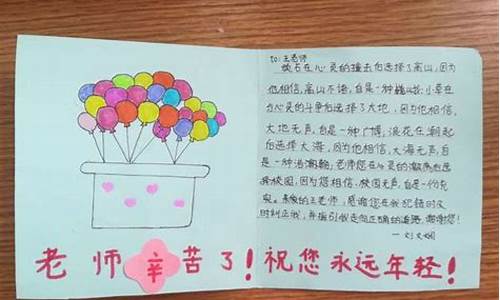 to:王老师
岩石在心灵的撞击后选择了高山,因为
他相信,高山不语,自是一种巍峨;小草在
与心灵的斗争后选择了大地,因为他相信,
大地无声,自是一种广博;浪花在潮起
后选择大海,因为他相信,大海无声,自
是一种浩瀚;老师您在心灵的 后选
择校园,因为您相信,校园无声,自是一份充
实。亲爱的王老师,感谢您在我犯错时及
时纠正我,并指引我走向正确的道路,谢谢您!
老师辛苦了!祝您永远年轻!